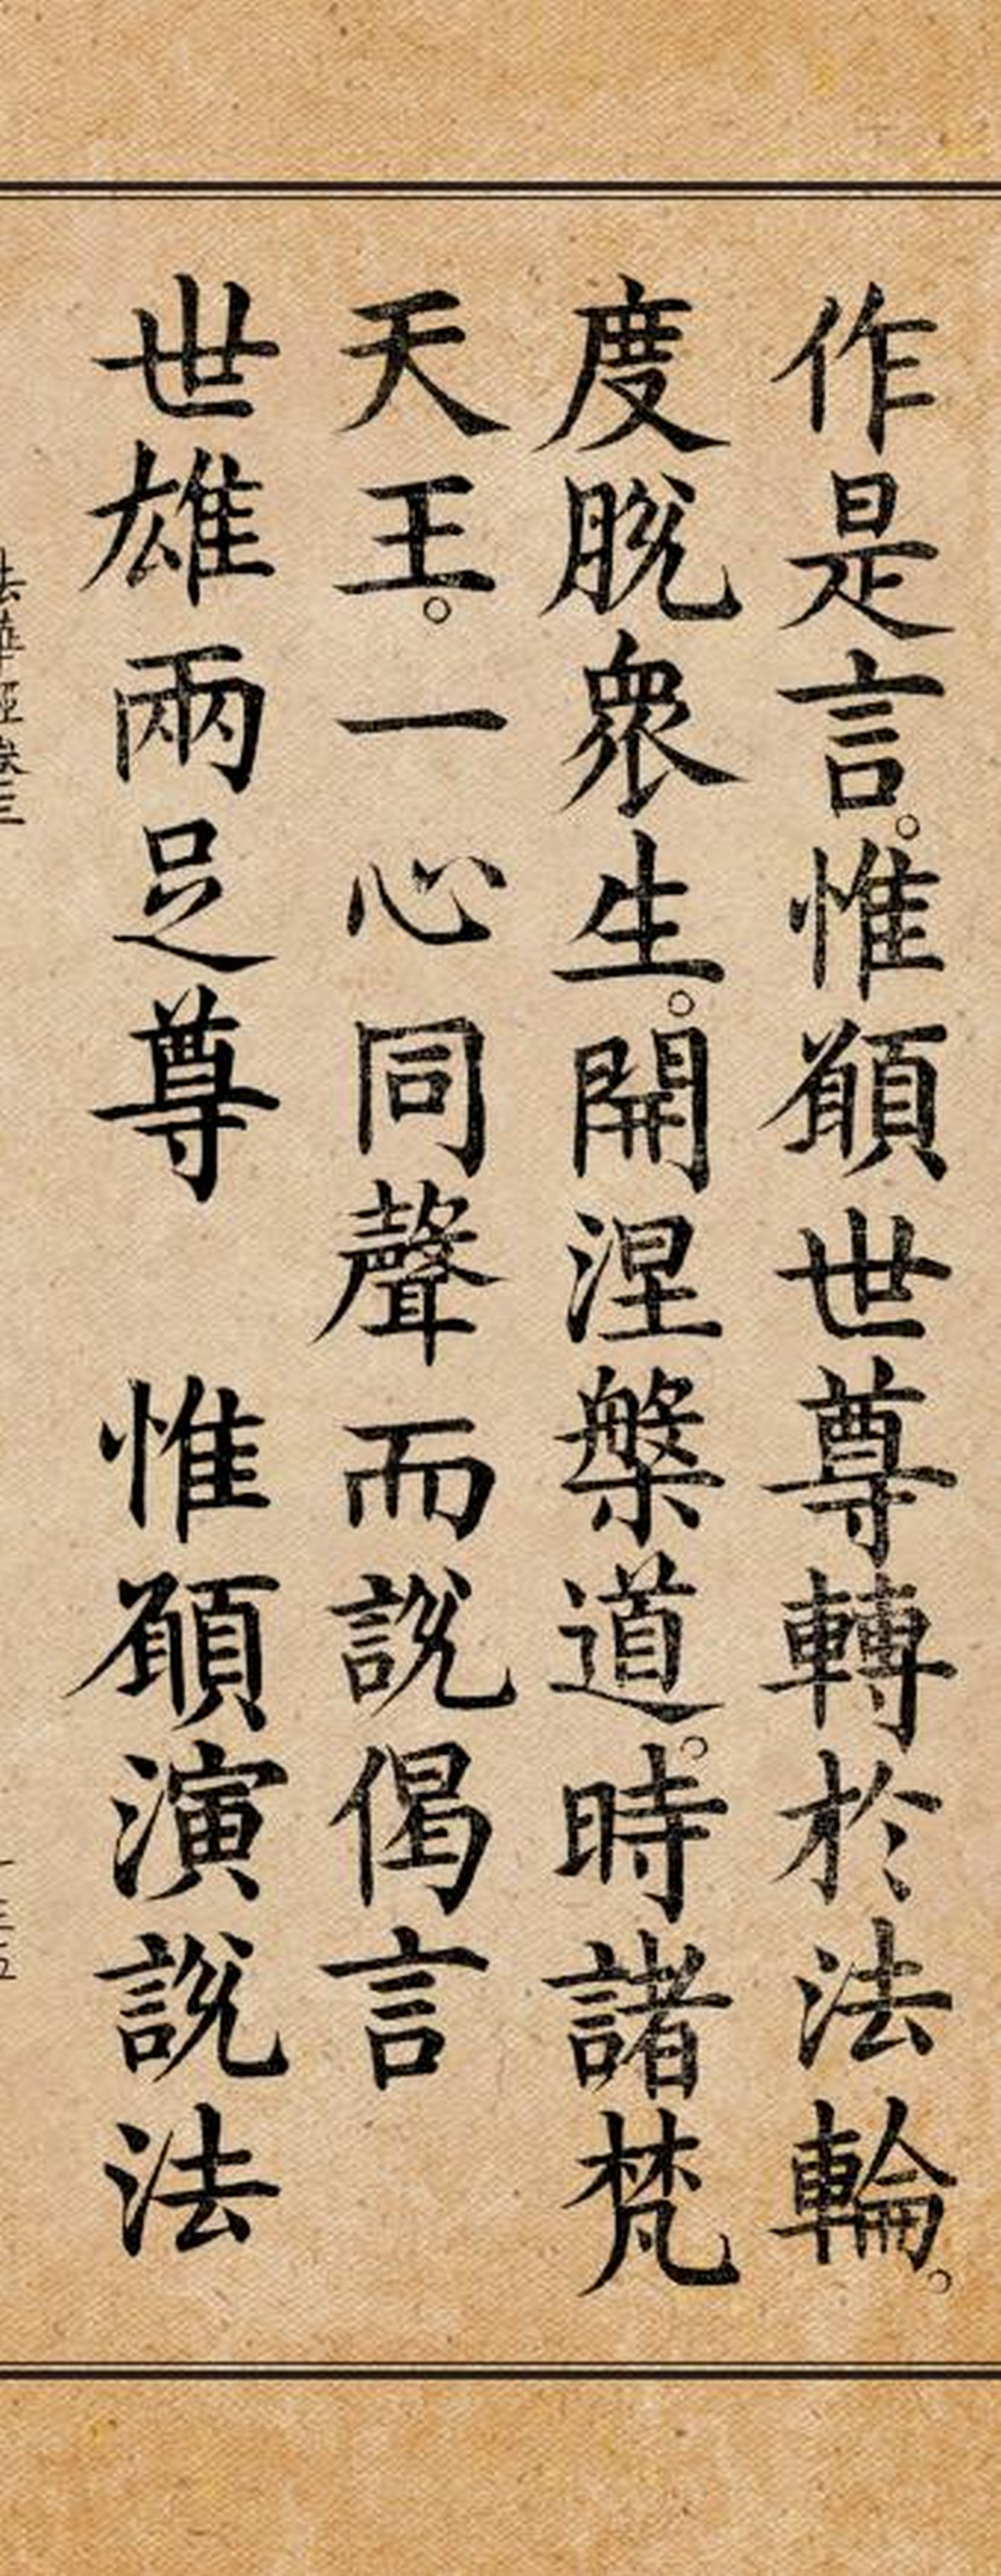 作是言。惟願世尊轉於法輪。
度脫衆生。開涅槃道。時諸梵
天王。一心同聲而說偈言
世雄兩足尊　惟願演說法
法華經卷三